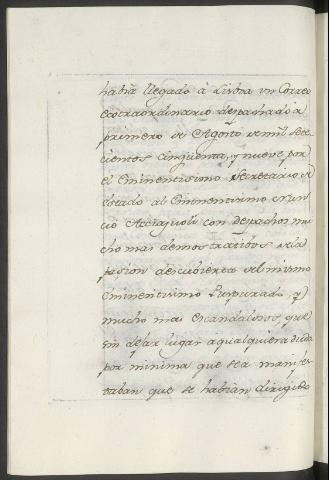 habia llegado à Lisboa un Correo
extraordinario despachado à
primero de Agosto de mil sete-
cientos cinquenta, y nueve por
el Eminentisimo Secretario de
Estado al Eminentisimo Nun-
cio Acciajuoli con despachos mu-
cho mas demostratibos de la
pasion descubierta del mismo
Eminentisimo Purpurado, y
mucho mas escandalosos, que
sin dejar lugar a qualquiera duda
por minima que sea manifes-
taban que se habian dirigido